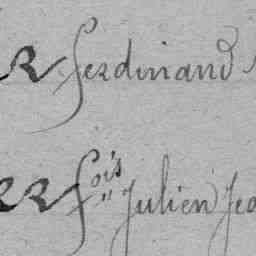 R ferdinand
RR fois Julien Jea